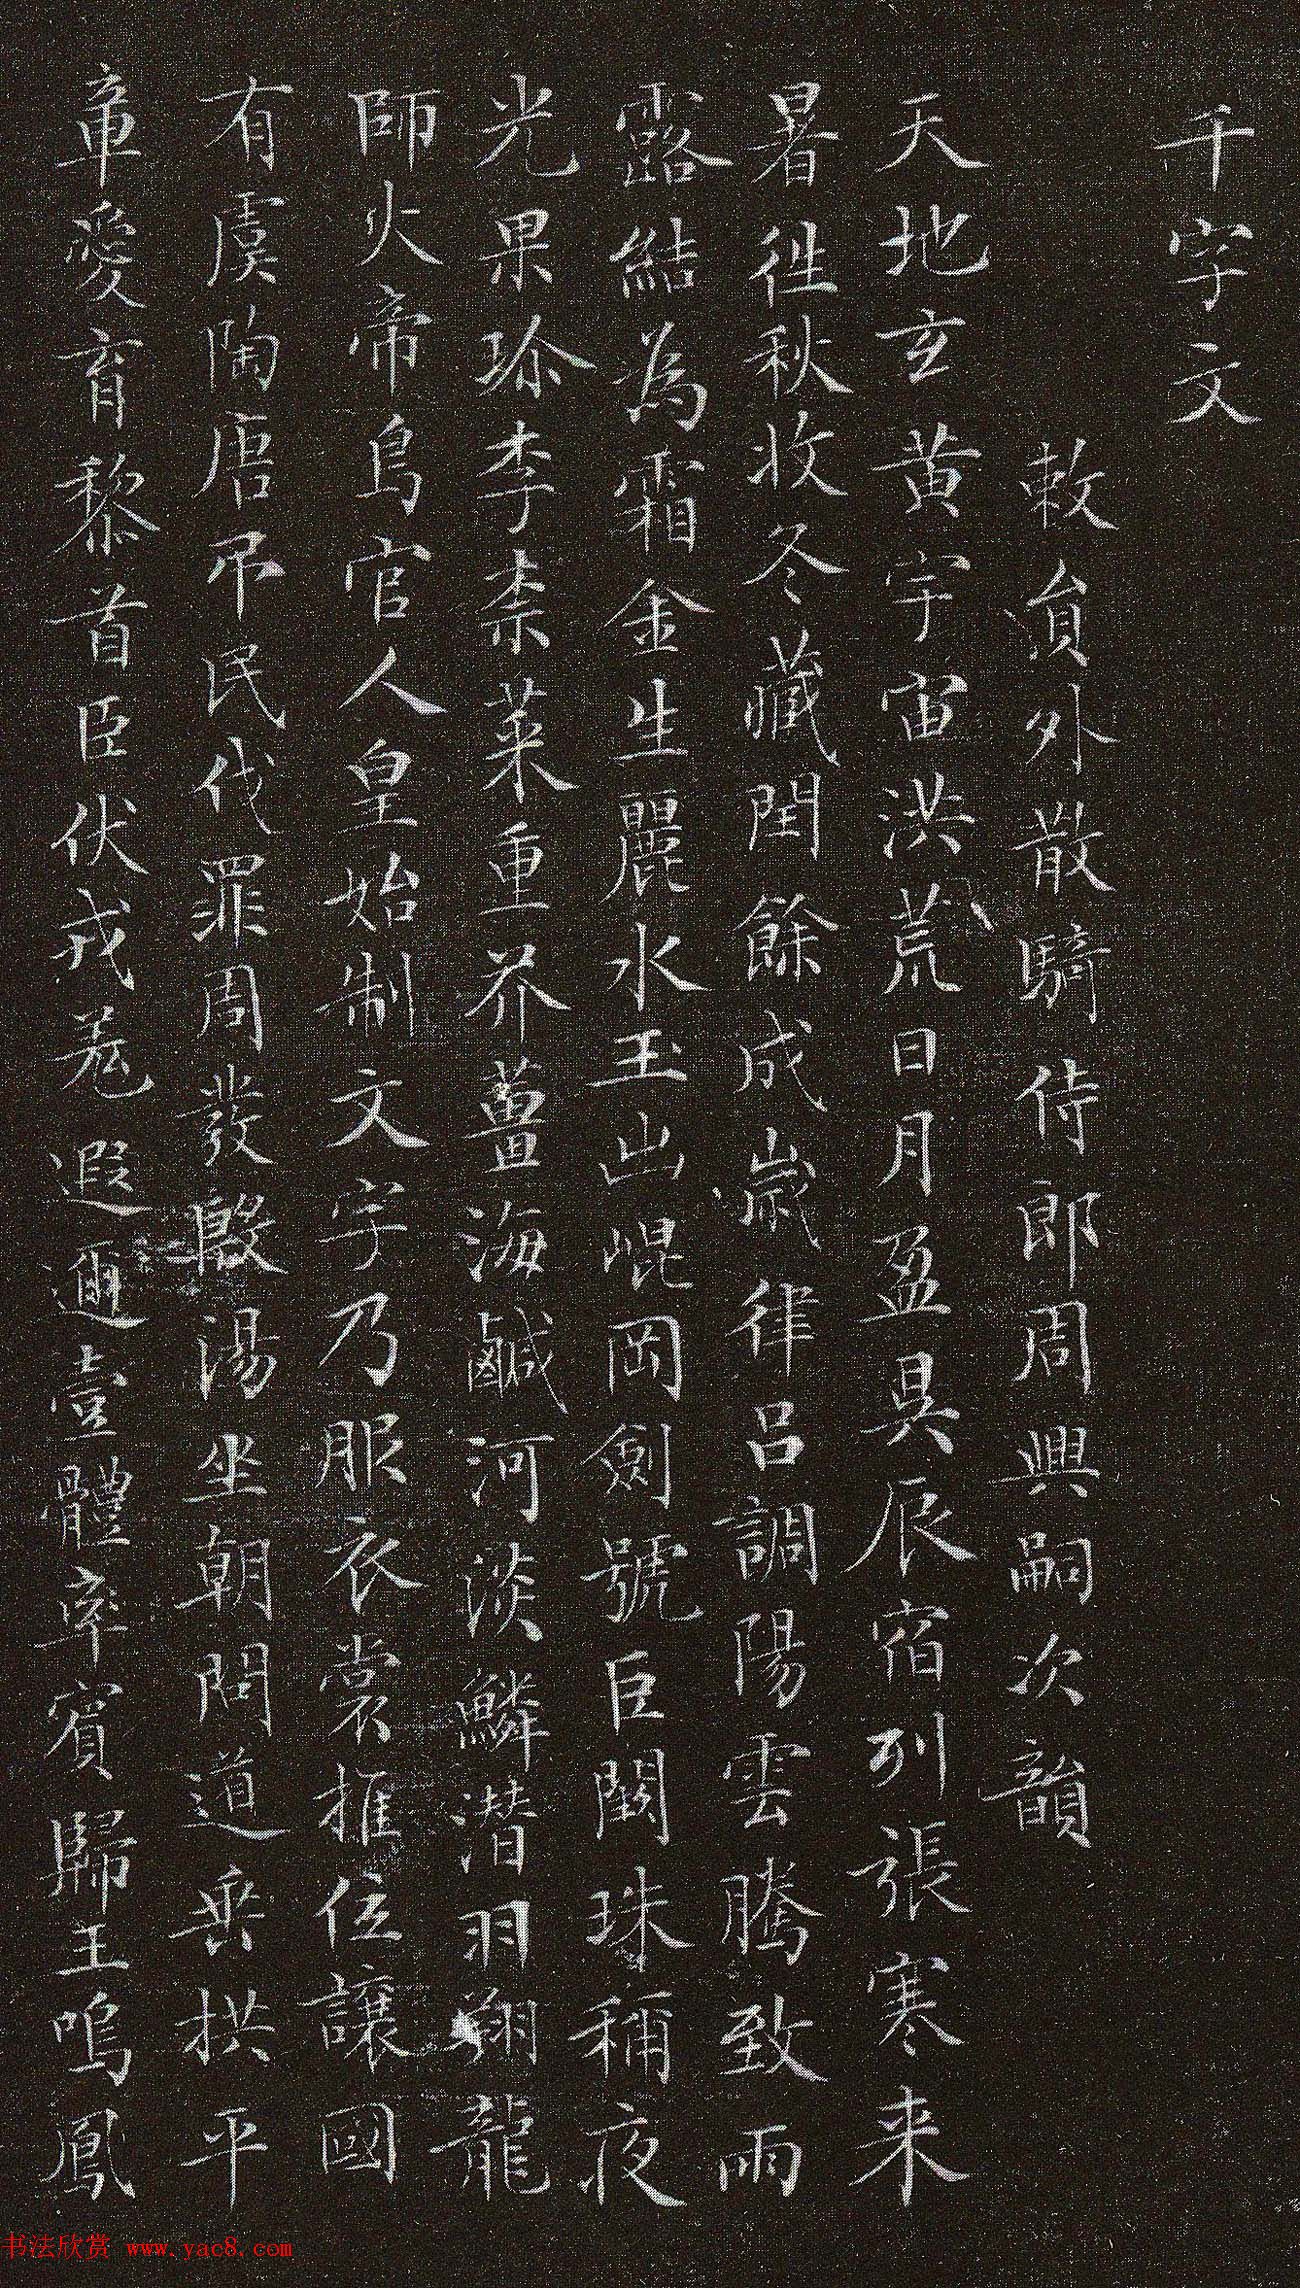 千字文
敕貟外散騎侍郎周興嗣次韻
天地玄黃宇宙洪荒日月盈昃辰宿列張寒来
暑往秋收冬藏閏餘成歲律呂調陽雲騰致雨
露結為霜金生麗水玉出崐岡劍號巨闕珠稱夜
光果珍李柰菜重芥薑海鹹河淡鱗潛羽翔龍
師火帝鳥官人皇始制文字乃服衣裳推位讓國
有虞陶唐吊民伐罪周發殷湯坐朝問道垂拱平
章愛育黎首臣伏戎羌遐邇壹體率賓歸王鳴鳳
书法欣赏 www.yac8.com